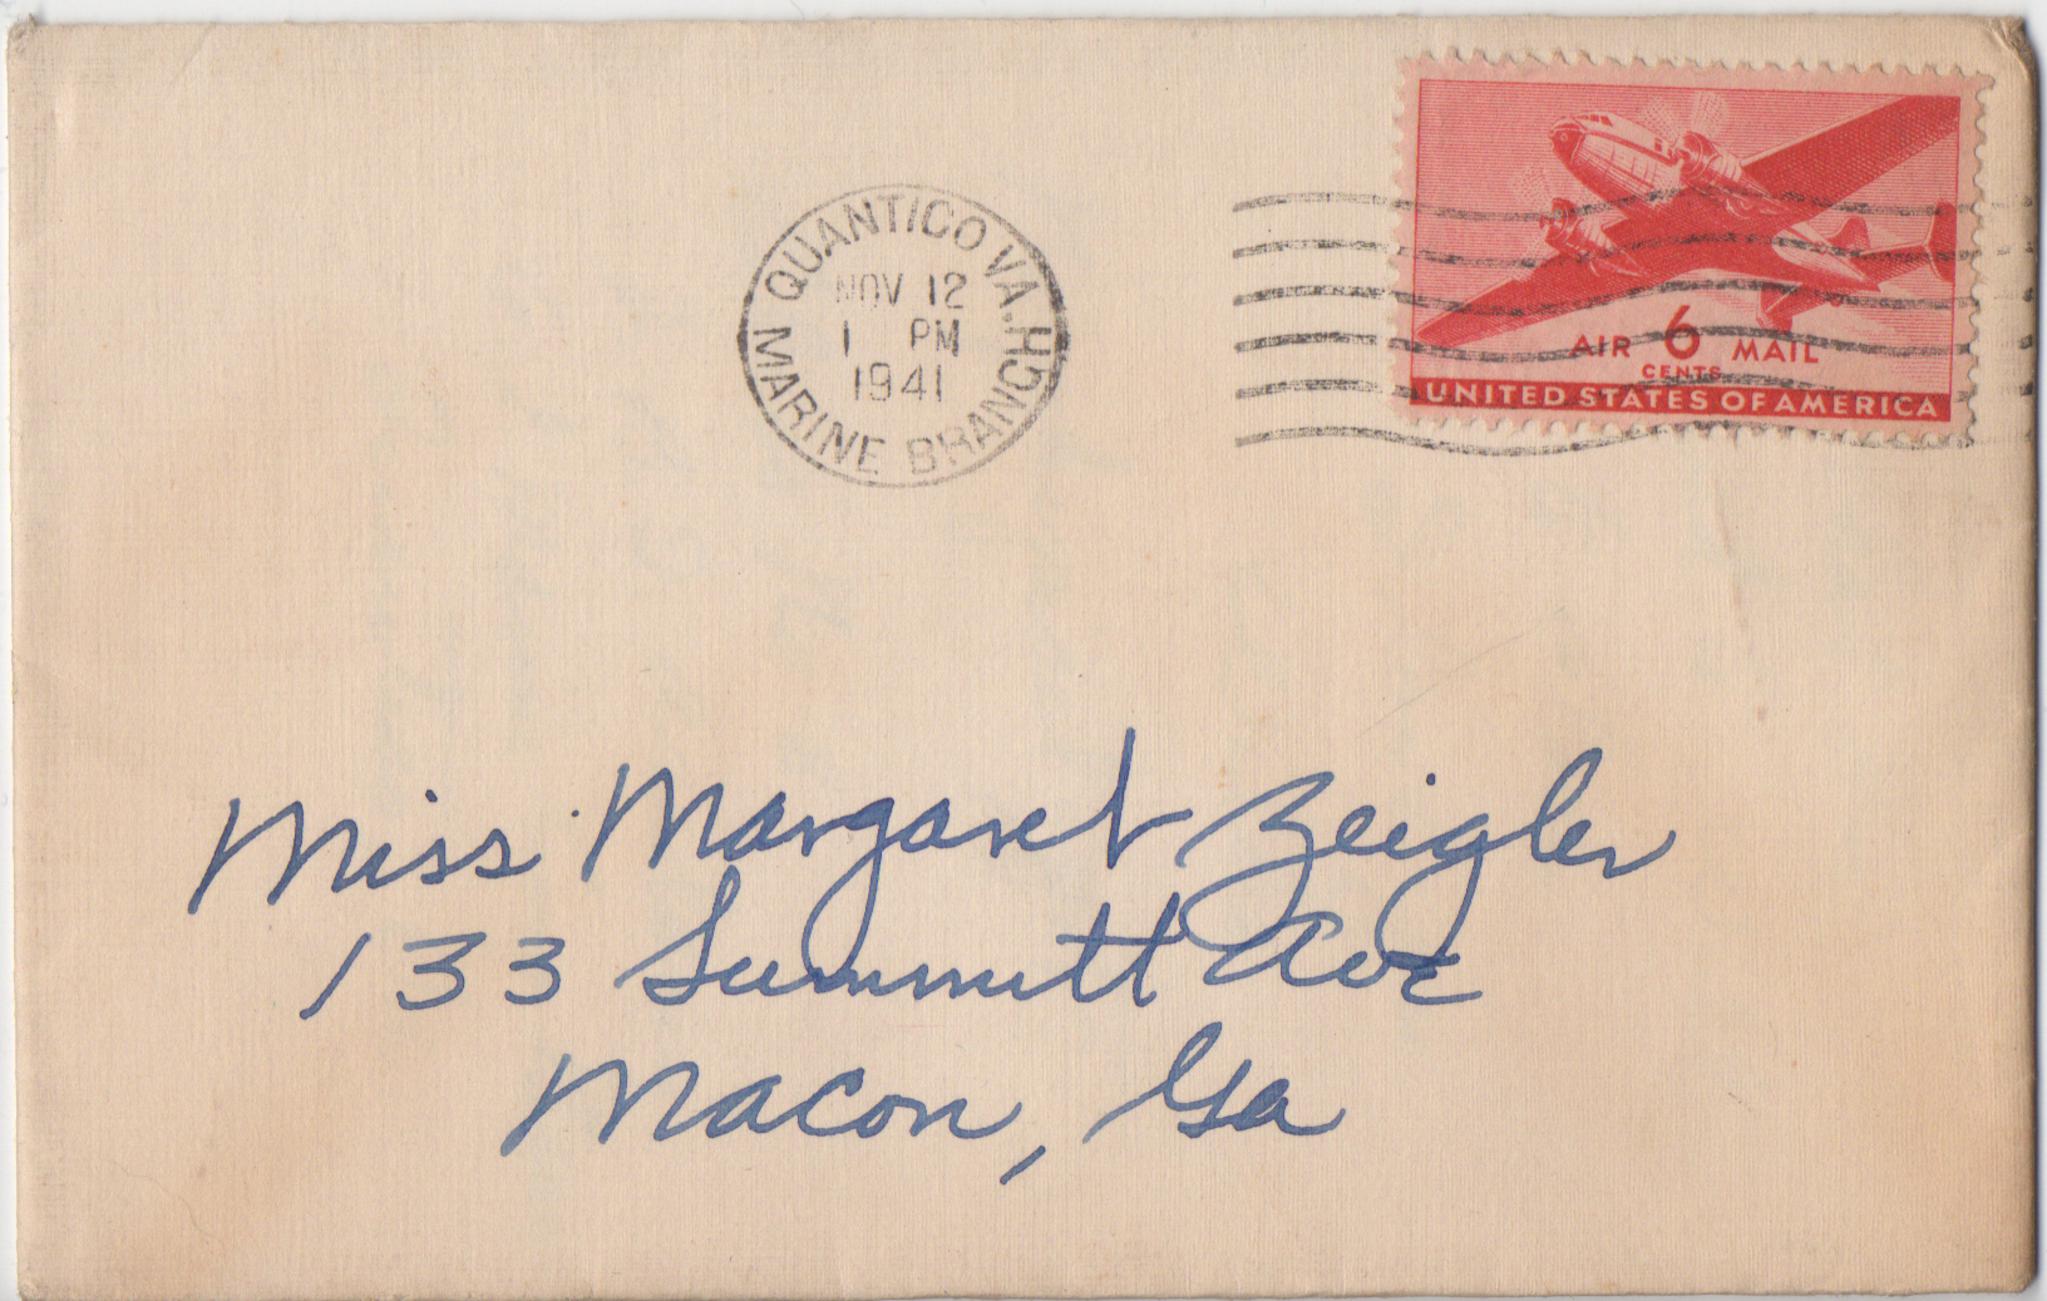 QUANTICO VA.
MARINE BRANCH
NOV 12
1 PM
1941
AIR 6 MAIL
CENTS
UNITED STATES OF AMERICA
Miss Margaret Zeigler
133 Summitt Ave
Macon, Ga